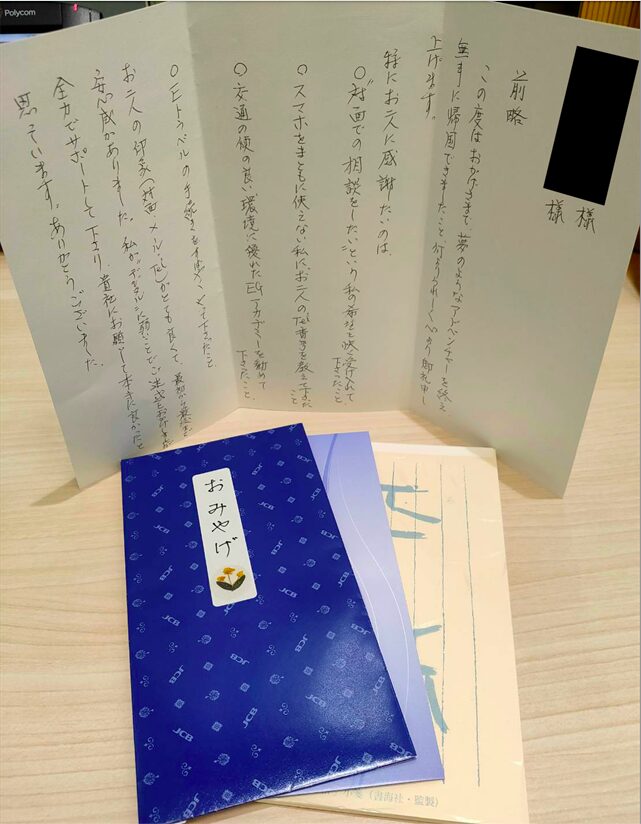 様
様
前略
この度はおかげさまで、夢のようなアドベンチャーを終え、
無事に帰国できましたこと何よりうれしく心より御礼申し
上げます。
特にお二人に感謝したいのは、
○"対面での相談をしたい"という私の希望を快く受け入れて
下さったこと
○スマホをまともに使えない私にお二人のTel番号を教えて下さった
こと
○交通の便の良い環境に優れたEGアカデミーを勧めて
下さったこと。
○Eトラベルの手続きを手際よくやって下さったこと
お二人の印象(対面・メール・Tel)がとても良くて、最初から最後まで
安心感がありました。私がデジタルに弱いことでご迷惑をおかけしましたが
全力でサポートして下さり、貴社にお願いして本当に良かったと
思っています。ありがとうございました。
おみやげ
JCB
Polycom
(書海社・監製)